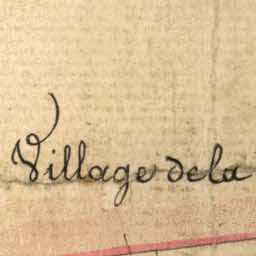 Village dela